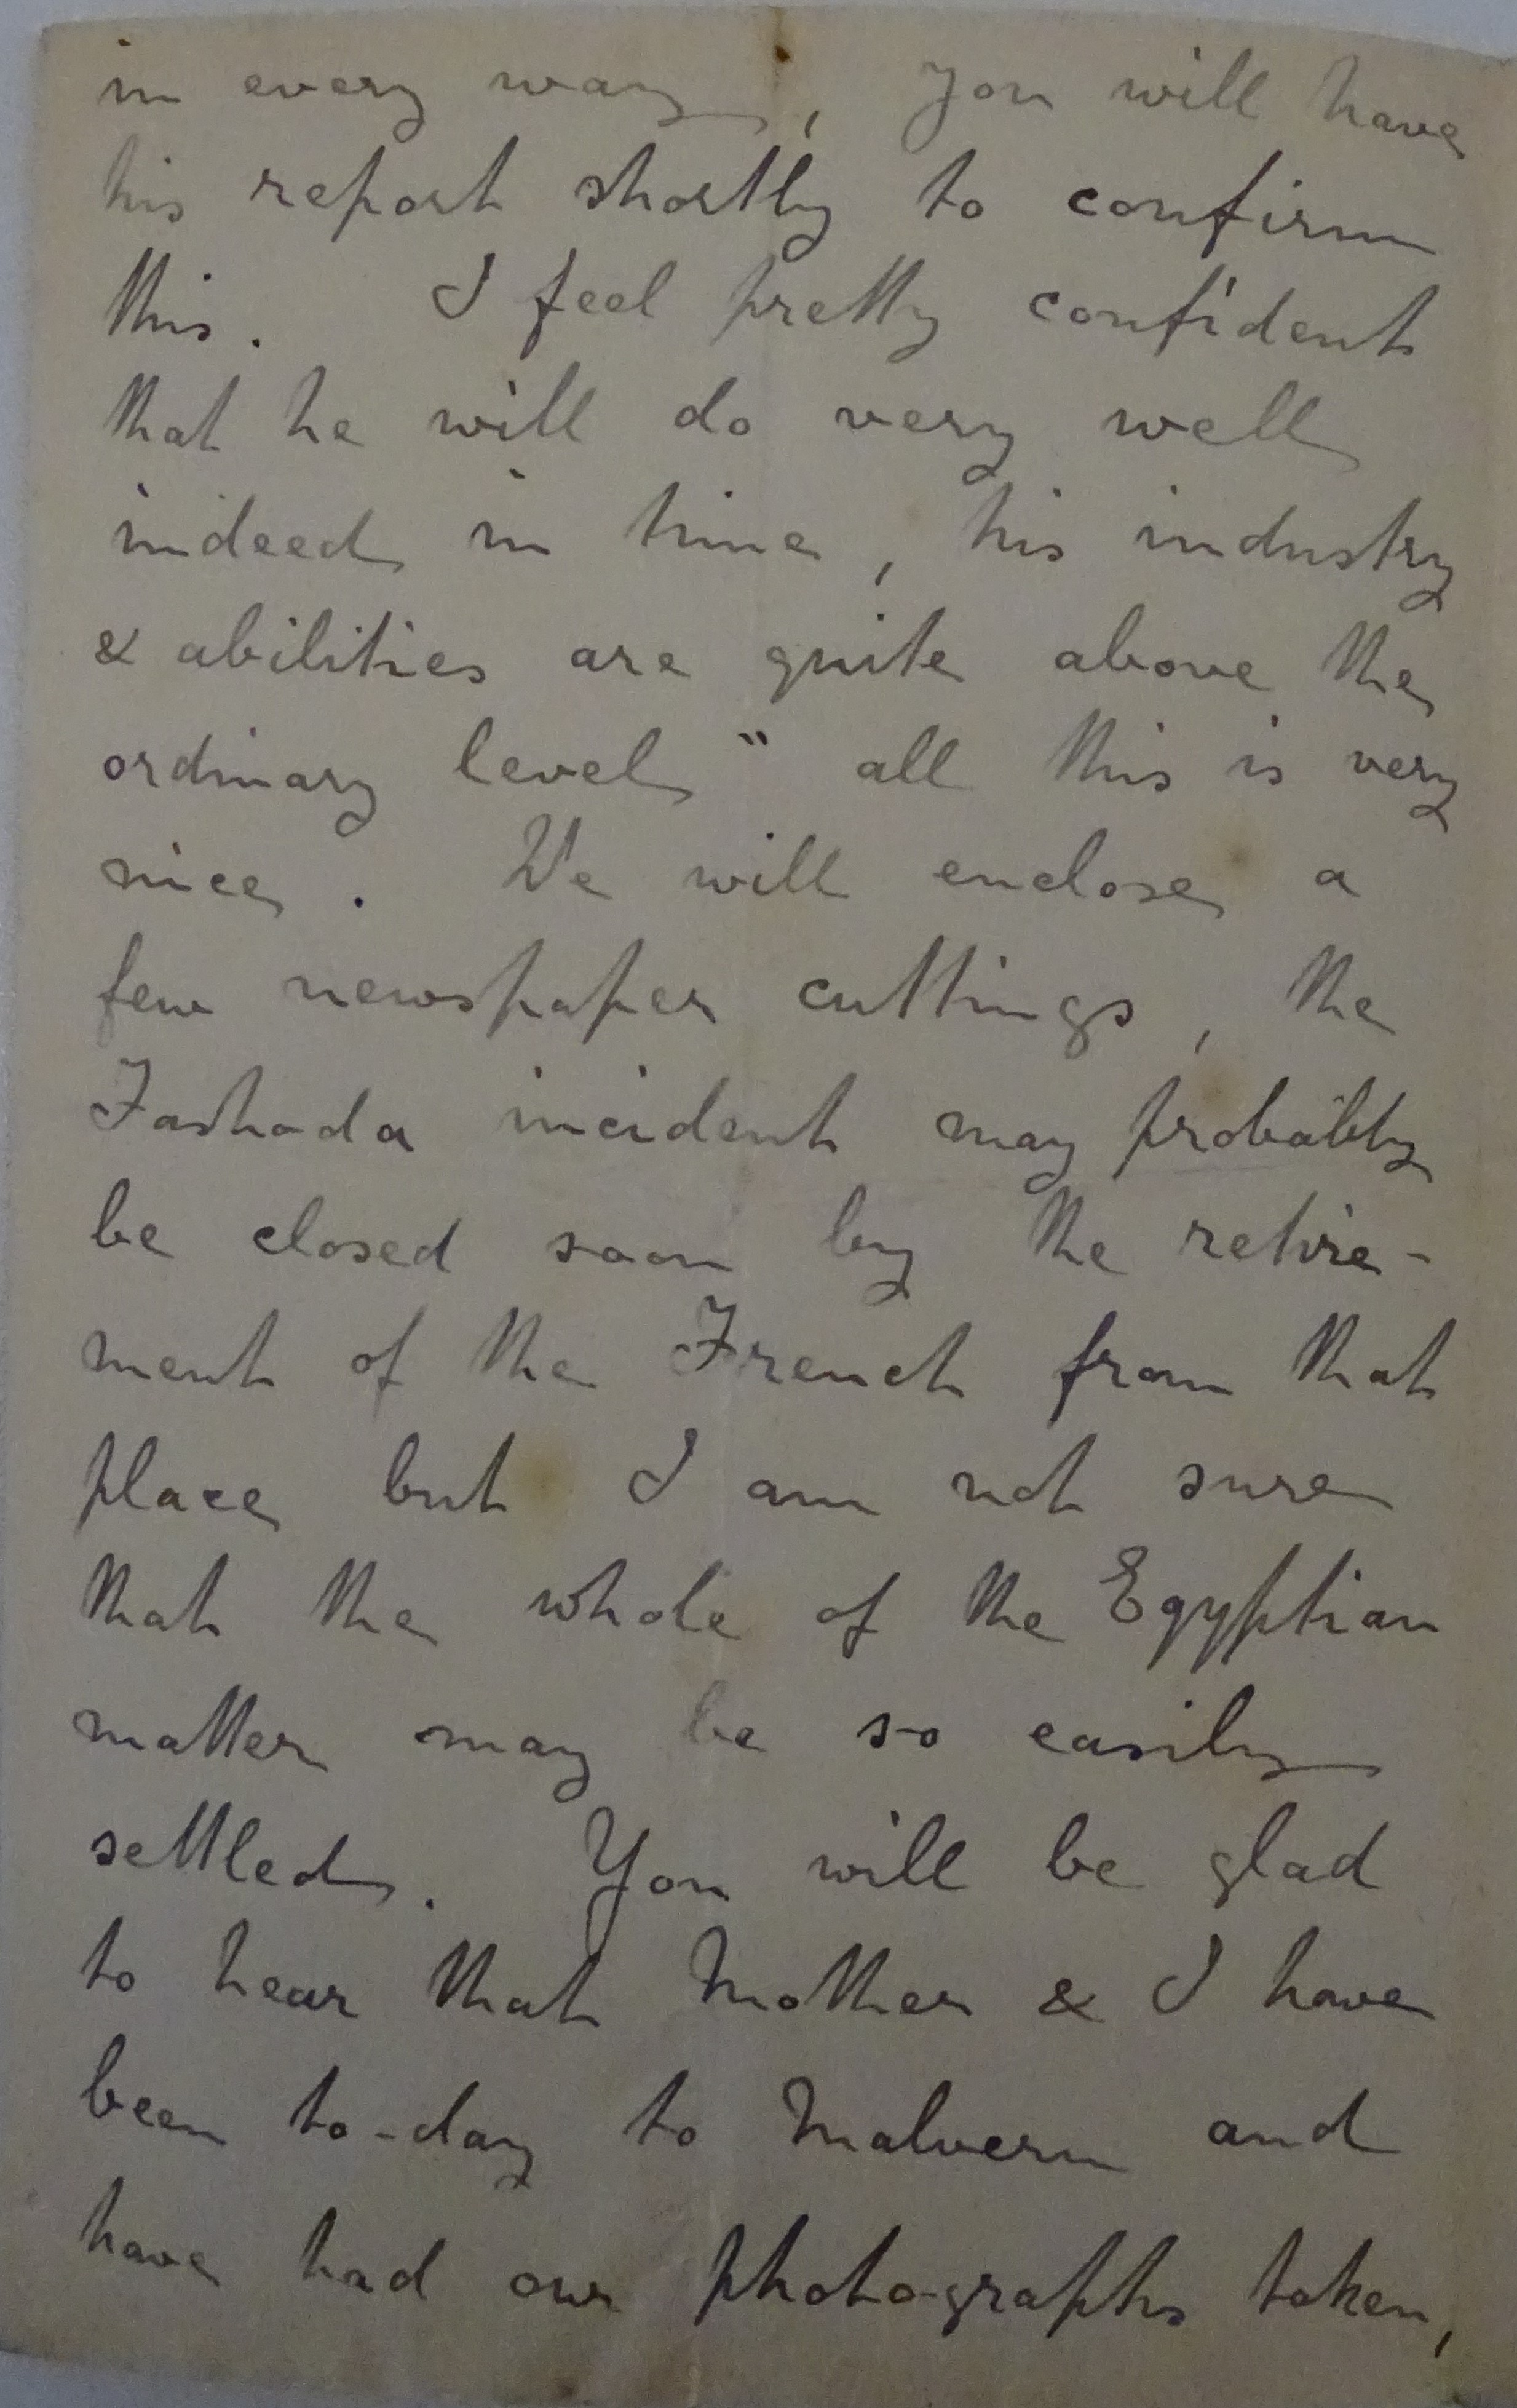 in every way, you will have
his report shortly to confirm
this. I feel pretty confident
that he will do very well
indeed in time, his industry
& abilities are quite above the
ordinary level" all this is very
nice. We will enclose a
few newspaper cuttings, the
Fashoda incident may probably
be closed soon by the retire-
ment of the French from that
place but I am not sure
that the whole of the Egyptian
matter may be so easily
settled. You will be glad
to hear that Mother & I have
been to-day to Malvern and
have had our photographs taken,